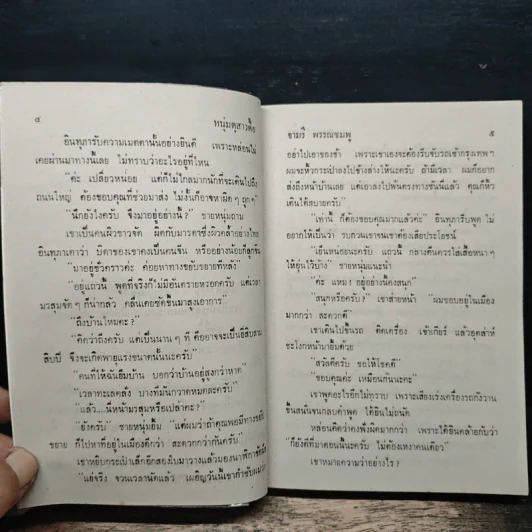 ๔ หนุ่มดุสาวดื้อ
อินทุภารับความเมตตานั้นอย่างยินดี เพราะหล่อนไม่
เคยผ่านมาทางนี้เลย ไม่ทราบว่าอะไรอยู่ที่ไหน
"ค่ะ เปลี่ยวหน่อย แต่ก็ไม่ไกลมากนักที่จะเดินไปถึง
ถนนใหญ่ ต้องขอบคุณที่ช่วยมาส่ง ไม่งั้นก็อาจหาผิด ๆ ถูก ๆ"
"นึกยังไงครับ จึงมาอยู่อย่างนี้?" ชายหนุ่มถาม
เขาเป็นคนผิวขาวจัด ผิดกับมารดาซึ่งผิวคล้ำอย่างไทย
อินทุภาเดาว่า บิดาของเขาคงเป็นคนจีน หรืออย่างน้อยก็ลูกจีน
"มาอยู่ชั่วคราวค่ะ คอยหาทางขยับขยายทีหลัง"
"อยู่แถวนี้ พูดที่จริงก็ไม่มีอันตรายหรอกครับ แต่เวลา
มรสุมจัด ๆ ก็น่ากลัว คลื่นเคยซัดขึ้นมาสูงเอาการ"
"ถึงบ้านไหมคะ?"
"คิดว่าถึงครับ แต่เป็นนาน ๆ ที คืออาจจะเป็นสิบสาม
สิบปี จึงจะเกิดพายุแรงขนาดนั้นนะครับ"
"คนที่ให้ฉันยืมบ้าน บอกว่าบ้านอยู่สูงกว่าหาด"
"เวลาทะเลคลั่ง บางทีมันกวาดหมดละครับ"
"แล้ว...นี่หน้ามรสุมหรือเปล่าคะ?"
"ยังครับ" ชายหนุ่มยิ้ม "แต่ผมว่าถ้าคุณพอมีทางขยับ
ขยาย ก็ไปหาที่อยู่ในเมืองดีกว่า สะดวกกว่ากันครับ"
เขาหยิบกระเป๋าเล็กอีกสองใบมาวางแล้วมองนาฬิกาข้อมือ
"แย่จริง จวนเวลานัดแล้ว เผอิญวันนี้เขากำชับผมว่า
จามรี พรรณชมพู ๕
อย่าไปเอาของช้า เพราะเขาเองจะต้องรีบขับรถเข้ากรุงเทพฯ
ผมจะให้การเปล่งไปข้างล่างให้นะครับ ถ้ามีเวลา ผมก็อยาก
ส่งถึงหน้าบ้านเลย แต่เอาลงไปพ้นตรงทางชันนี่แล้ว คุณก็หิ้ว
เดินได้สบายครับ"
"เท่านี้ ก็ต้องขอบคุณมากแล้วค่ะ" อินทุภารีบพูด ไม่
อยากให้เป็นว่า รบกวนเขาจนเขาต้องเสียประโยชน์
"เย็นหน่อยนะครับ แถวนี้ กลางคืนควรใส่เสื้อหนา ๆ
ให้อุ่นไว้บ้าง" ชายหนุ่มแนะนำ
"ค่ะ แหม! อยู่อย่างนี้คงสนุก"
"สนุกหรือครับ?" เขาส่ายหน้า "ผมชอบอยู่ในเมือง
มากกว่า สะดวกดี"
เขาเดินไปขึ้นรถ ติดเครื่อง เข้าเกียร์ แล้วอุตส่าห์
ชะโงกหน้ามายิ้มด้วย
"สวัสดีครับ ขอให้โชคดี"
"ขอบคุณค่ะ เหมือนกันนะคะ"
เขาพูดอะไรอีกไม่ทราบ เพราะเสียงเร่งเครื่องรถกังวาน
ขึ้นสนั่นจนกลบคำพูด ได้ยินไม่ถนัด
หล่อนคิดว่าคงฟังผิดมากกว่า เพราะได้ยินคล้ายกับว่า
"ก็ยังดีที่มาตอนนี้นะครับ ไม่ต้องเหงาคนเดียว"
เขาหมายความว่าอย่างไร?